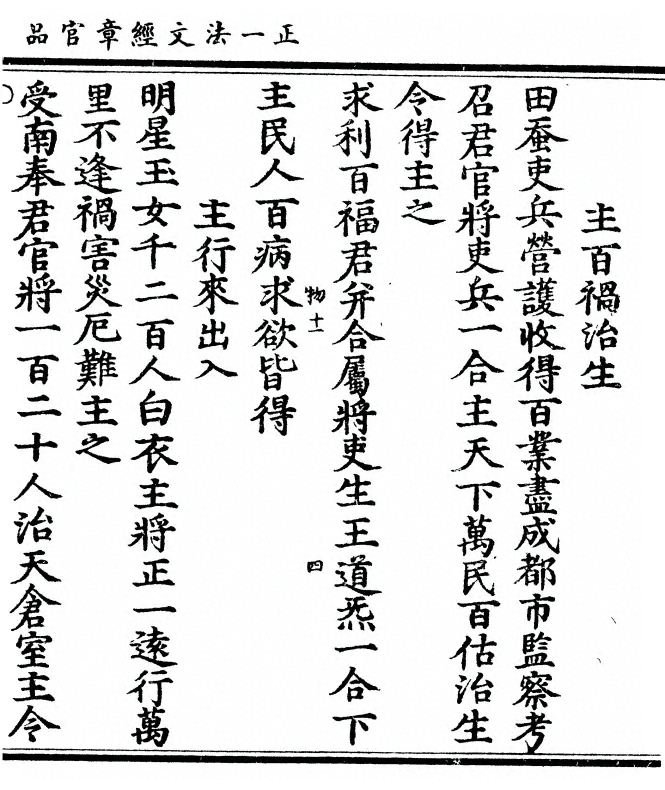 正一法文經章官品
主百禍治生
田蚕吏兵營護收得百業盡成都市監察考
召君官將吏兵一合主天下萬民百估治生
令得主之
求利百福君并合屬將吏生王道炁一合下
物十一
四
主民人百病求欲皆得
主行來出入
明星玉女千二百人白衣主將正一遠行萬
里不逢禍害災厄難主之
受南奉君官將一百二十人治天倉室主令